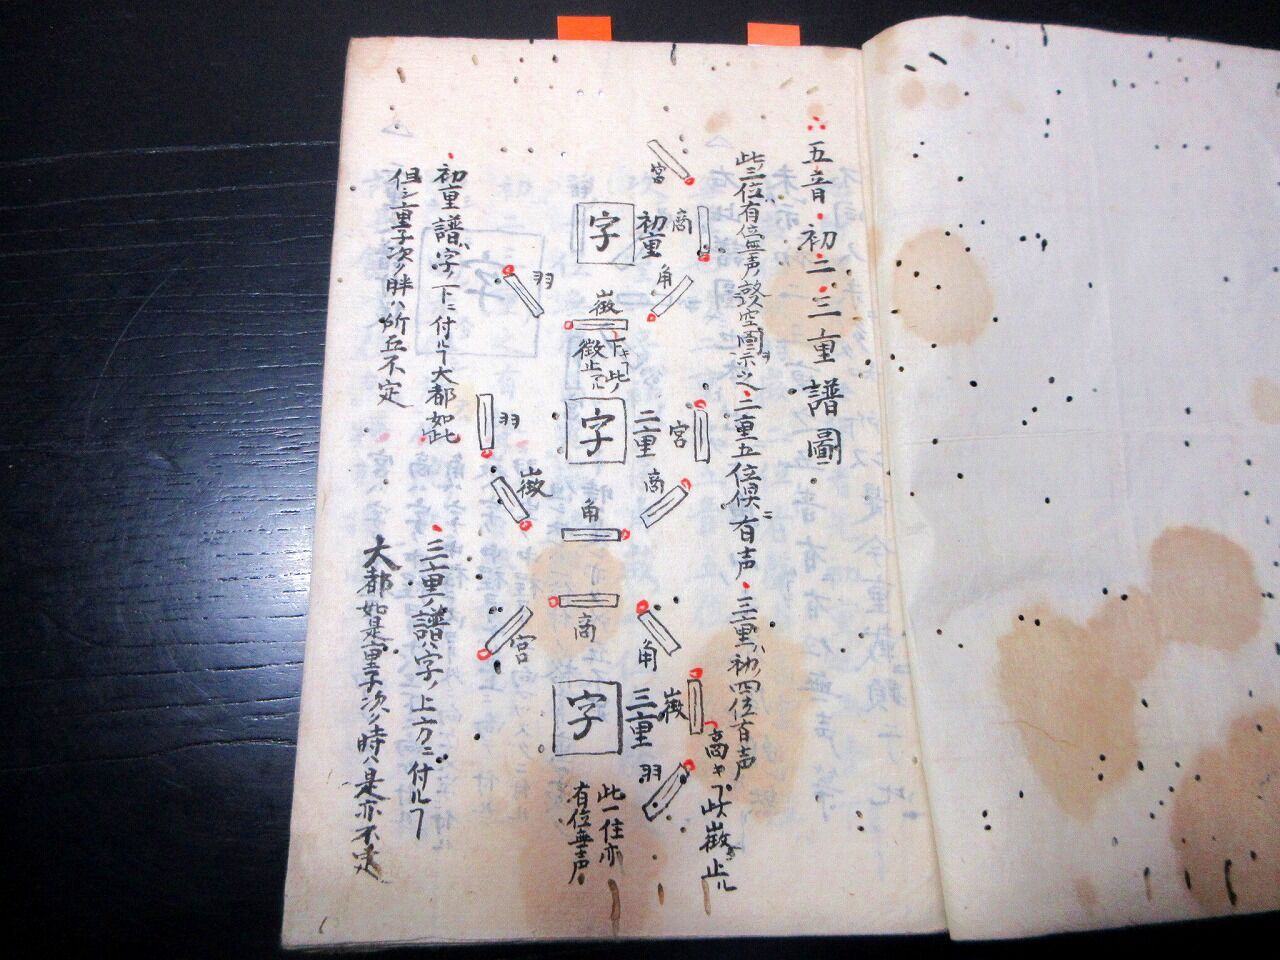 五音初二三重譜圖
此二位有位無声ノ故空圖示之二重五位倶ニ有声三重ハ初ノ四位有声
宮
商
初重
字
角
徴
羽
下キヿ此ノ
徴止ル
宮
二重
字
商
角
徴
羽
商
角
宮
徴
三重
字
羽
高キヿ此徴止ル
此一位亦
有位無声
初重譜ハ字ノ下ニ付ルヿ大都如此
但シ重子次ノ時ハ所立不定
三重ノ譜ハ字ノ上方ニ付ルヿ
大都如是重子次ノ時ハ是亦不定